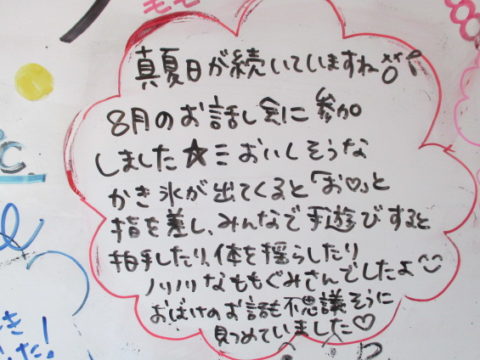 もも
真夏日が続いていますね
8月のお話し会に参加
しました☆ミ おいしそうな
かき氷が出てくると「お♡」と
指を差し、みんなで手遊びすると
拍手したり、体を揺らしたり
ノリノリなももぐみさんでしたよ
おばけのお話も不思議そうに
見つめていました♡